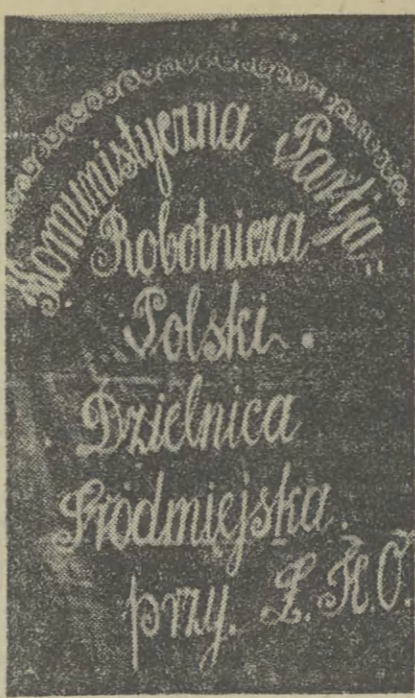 Komunistyczna Partja
Robotnicza
Polski.
Dzielnica
Śródmiejska.
przy. Ł. K. O.